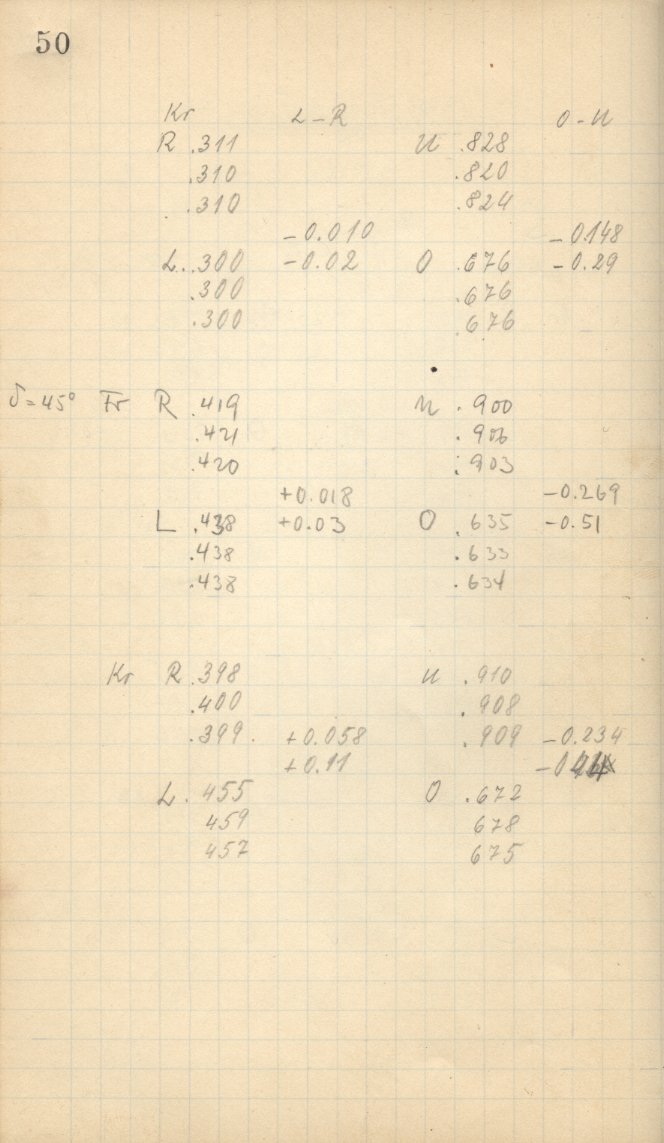 50
Kr L-R O-U
R .311 U .828
.310 .820
.310 .824
-0.010 -0.148
L. .300 -0.02 O .676 -0.29
.300 .676
.300 .676
δ=45° Fr R .419 U .900
.421 .906
.420 .903
+0.018 -0.269
L .438 +0.03 O .635 -0.51
.438 .633
.438 .634
Kr R .398 U .910
.400 .908
.399. +0.058 .909 -0.234
+0.11
L. 455 O .672
459 678
457 675